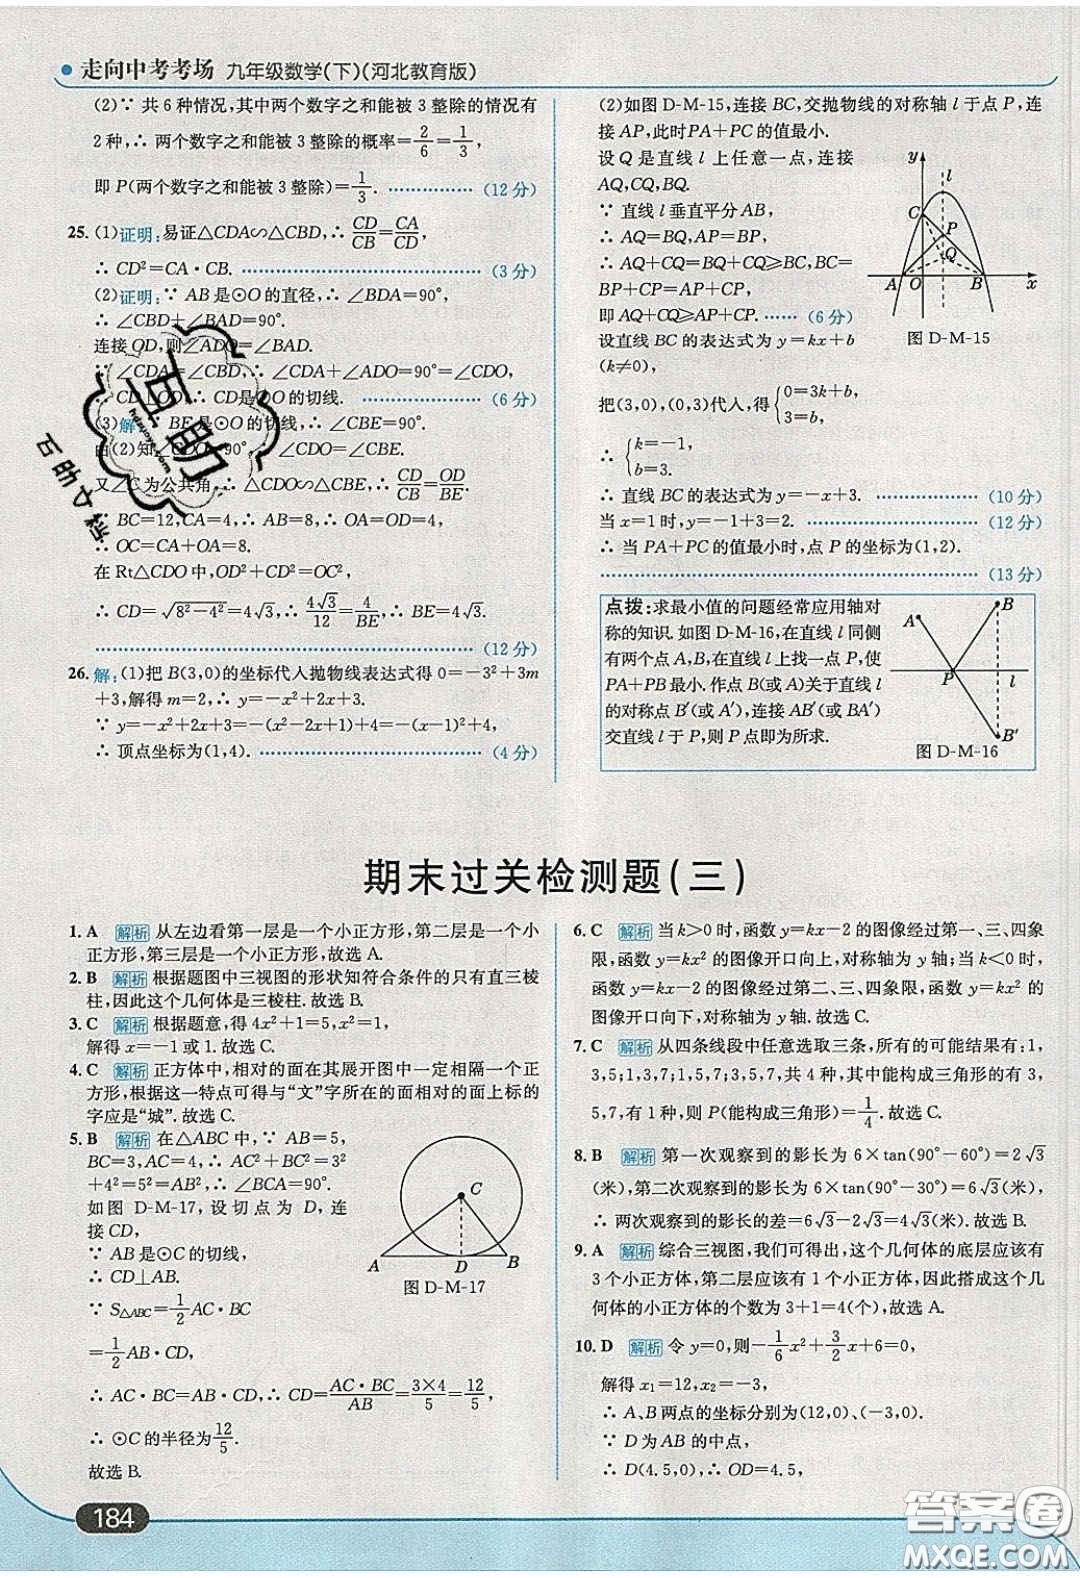 走向中考考场 九年级数学(下)(河北教育版)
(2)∵ 共6种情况,其中两个数字之和能被3整除的情况有
2种,∴ 两个数字之和能被3整除的概率=2/6=1/3,
即P(两个数字之和能被3整除)=1/3. ……………(12分)
25. (1)证明:易证△CDA∽△CBD,∴ CD/CB=CA/CD,
∴ CD²=CA·CB. ……………(3分)
(2)证明:∵ AB是⊙O的直径,∴ ∠BDA=90°,
∴ ∠CBD+∠BAD=90°.
连接OD,则∠ADO=∠BAD.
∵ ∠CDA=∠CBD,∴ ∠CDA+∠ADO=90°=∠CDO,
∴ CD⊥OD,∴ CD是⊙O的切线. ……………(6分)
(3)解:∵ BE是⊙O的切线,∴ ∠CBE=90°.
由(2)知∠CDO=90°,∴ ∠CDO=∠CBE.
又∠C为公共角,∴ △CDO∽△CBE,∴ CD/CB=OD/BE.
∵ BC=12,CA=4,∴ AB=8,∴ OA=OD=4,
∴ OC=CA+OA=8.
在Rt△CDO中,OD²+CD²=OC²,
∴ CD=√(8²−4²)=4√3,∴ 4√3/12=4/BE,∴ BE=4√3.
……………(12分)
26. 解:(1)把B(3,0)的坐标代入抛物线表达式得0=−3²+3m
+3,解得m=2,∴ y=−x²+2x+3.
∵ y=−x²+2x+3=−(x²−2x+1)+4=−(x−1)²+4,
∴ 顶点坐标为(1,4). ……………(4分)
(2)如图D-M-15,连接BC,交抛物线的对称轴l于点P,连
接AP,此时PA+PC的值最小.
设Q是直线l上任意一点,连接
AQ,CQ,BQ.
∵ 直线l垂直平分AB,
∴ AQ=BQ,AP=BP,
∴ AQ+CQ=BQ+CQ≥BC,BC=
BP+CP=AP+CP,
即AQ+CQ≥AP+CP. ……(6分)
y
l
C
P
Q
A
O
B
x
图D-M-15
设直线BC的表达式为y=kx+b
(k≠0),
把(3,0),(0,3)代入,得{0=3k+b, 3=b,
∴ {k=−1, b=3.
∴ 直线BC的表达式为y=−x+3. ……………(10分)
当x=1时,y=−1+3=2. ……………(12分)
∴ 当PA+PC的值最小时,点P的坐标为(1,2).
……………(13分)
点拨:求最小值的问题经常应用轴对
称的知识.如图D-M-16,在直线l同侧
有两个点A,B,在直线l上找一点P,使
PA+PB最小.作点B(或A)关于直线l
的对称点B′(或A′),连接AB′(或BA′)
交直线l于P,则P点即为所求.
A
B
P
l
B′
图D-M-16
期末过关检测题(三)
1. A 解析 从左边看第一层是一个小正方形,第二层是一个小
正方形,第三层是一个小正方形,故选A.
2. B 解析 根据题图中三视图的形状知符合条件的只有直三棱
柱,因此这个几何体是三棱柱.故选B.
3. C 解析 根据题意,得4x²+1=5,x²=1,
解得x=−1或1.故选C.
4. C 解析 正方体中,相对的面在其展开图中一定相隔一个正
方形,根据这一特点可得与“文”字所在的面相对的面上标的
字应是“城”.故选C.
5. B 解析 在△ABC中,∵ AB=5,
BC=3,AC=4,∴ AC²+BC²=3²
+4²=5²=AB²,∴ ∠BCA=90°.
如图D-M-17,设切点为D,连
接CD,
∵ AB是⊙C的切线,
∴ CD⊥AB.
∵ S△ABC=1/2AC·BC
=1/2AB·CD,
∴ AC·BC=AB·CD,∴ CD=AC·BC/AB=3×4/5=12/5,
∴ ⊙C的半径为12/5.
故选B.
C
A
D
B
图D-M-17
6. C 解析 当k>0时,函数y=kx−2的图像经过第一、三、四象
限,函数y=kx²的图像开口向上,对称轴为y轴;当k<0时,
函数y=kx−2的图像经过第二、三、四象限,函数y=kx²的
图像开口向下,对称轴为y轴.故选C.
7. C 解析 从四条线段中任意选取三条,所有的可能结果有:1,
3,5;1,3,7;1,5,7;3,5,7,共4种,其中能构成三角形的有3,
5,7,有1种,则P(能构成三角形)=1/4.故选C.
8. B 解析 第一次观察到的影长为6×tan(90°−60°)=2√3
(米),第二次观察到的影长为6×tan(90°−30°)=6√3(米),
∴ 两次观察到的影长的差=6√3−2√3=4√3(米).故选B.
9. A 解析 综合三视图,我们可得出,这个几何体的底层应该有
3个小正方体,第二层应该有1个小正方体,因此搭成这个几
何体的小正方体的个数为3+1=4(个),故选A.
10. D 解析 令y=0,则−1/6x²+3/2x+6=0,
解得x₁=12,x₂=−3,
∴ A、B两点的坐标分别为(12,0),(−3,0).
∵ D为AB的中点,
∴ D(4.5,0),∴ OD=4.5,
184
互助
hdzuoye.com
互助文档
答案圈
MXQE.COM